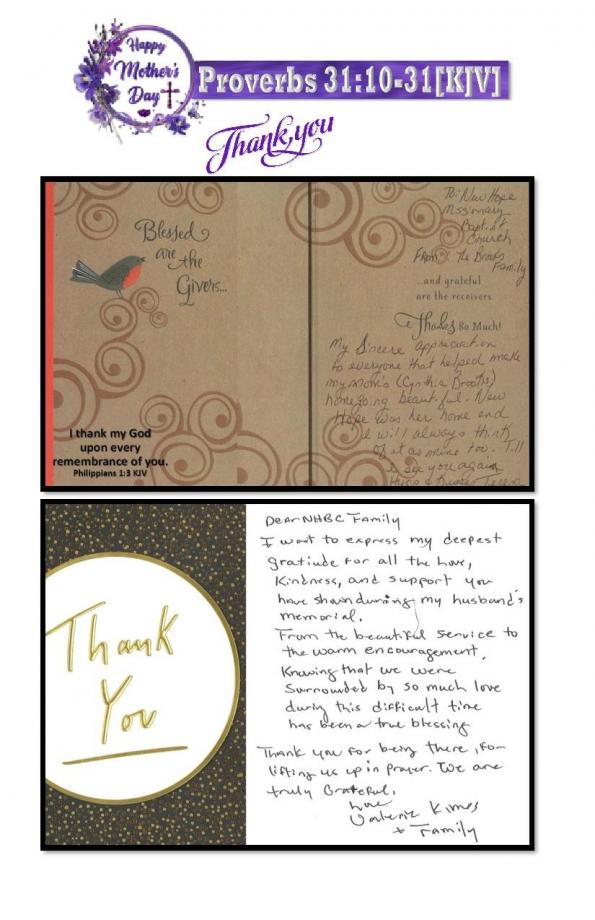 Happy
Mother's
Day
Proverbs 31:10-31[KJV]
Thank you
Blessed
are the
Givers...
I thank my God
upon every
remembrance of you.
Philippians 1:3 KJV
To: New Hope
Missionary
Baptist
Church
From: The Brooks
Family
...and grateful
are the receivers.
Thanks So Much!
My Sincere appreciation
to everyone that helped make
my mom's (Cynthia Brooks)
homegoing beautiful. New
Hope was her home and
I will always think
of it as mine too. Till
I see you again
Hugs & Kisses Teresa
Thank
You
Dear NHBC Family
I want to express my deepest
gratiude for all the love,
kindness, and support you
have shown during my husband's
memorial.
From the beautiful service to
the warm encouragement.
Knowing that we were
surrounded by so much love
during this difficult time
has been a true blessing
Thank you for being there, for
lifting us up in prayer. We are
truly Grateful.
Love
Valerie Kimes
+ Family